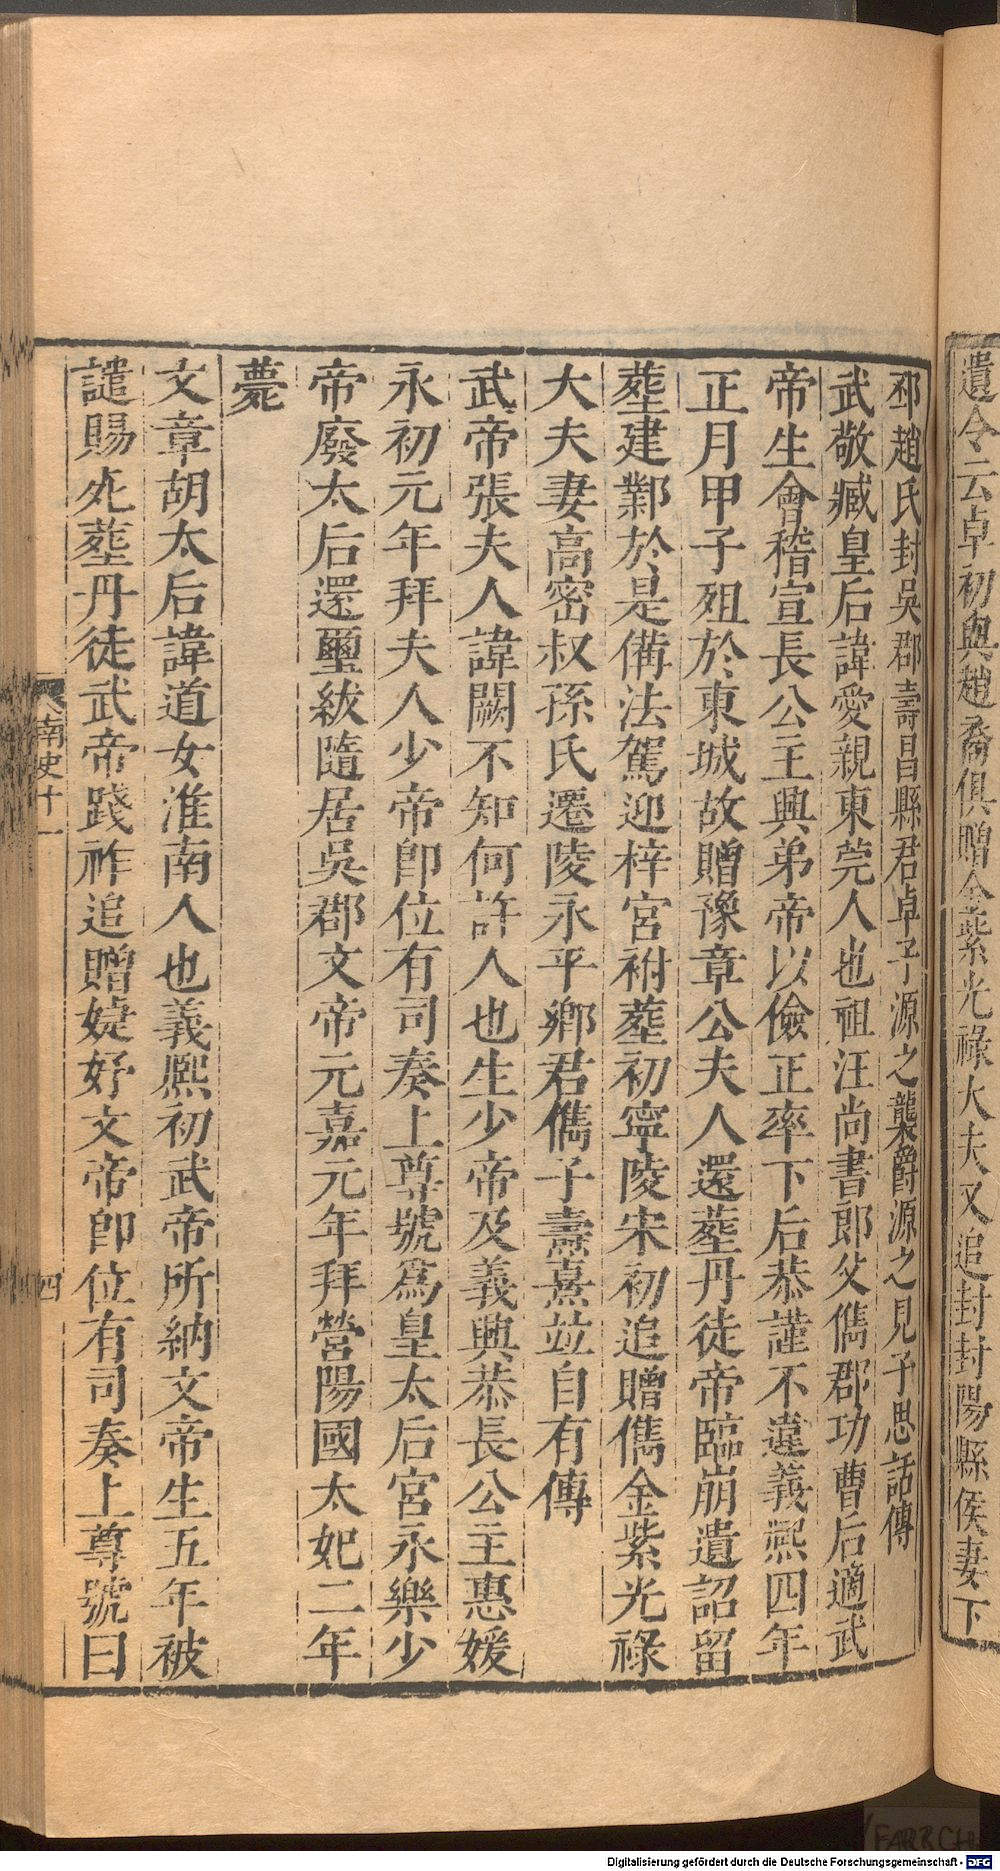 遺令云卓初與趙裔俱贈金紫光祿大夫又追封封陽縣侯妻下
邳趙氏封吳郡壽昌縣君卓子源之襲爵源之見子思話傳
武敬臧皇后諱愛親東莞人也祖汪尚書郎父儁郡功曹后適武
帝生會稽宣長公主興弟帝以儉正率下后恭謹不違義熙四年
正月甲子殂於東城故贈豫章公夫人還塟丹徒帝臨崩遺詔留
塟建鄴於是備法駕迎梓宮祔塟初寧陵宋初追贈儁金紫光祿
大夫妻高密叔孫氏遷陵永平鄉君儁子燾熹竝自有傳
武帝張夫人諱闕不知何許人也生少帝及義興恭長公主惠媛
永初元年拜夫人少帝即位有司奏上尊號爲皇太后宮永樂少
帝廢太后還璽紱隨居吳郡文帝元嘉元年拜營陽國太妃二年
薨
文章胡太后諱道女淮南人也義熙初武帝所納文帝生五年被
譴賜死塟丹徒武帝踐祚追贈婕妤文帝即位有司奏上尊號曰
南史十一
四
Digitalisierung gefördert durch die Deutsche Forschungsgemeinschaft - DFG